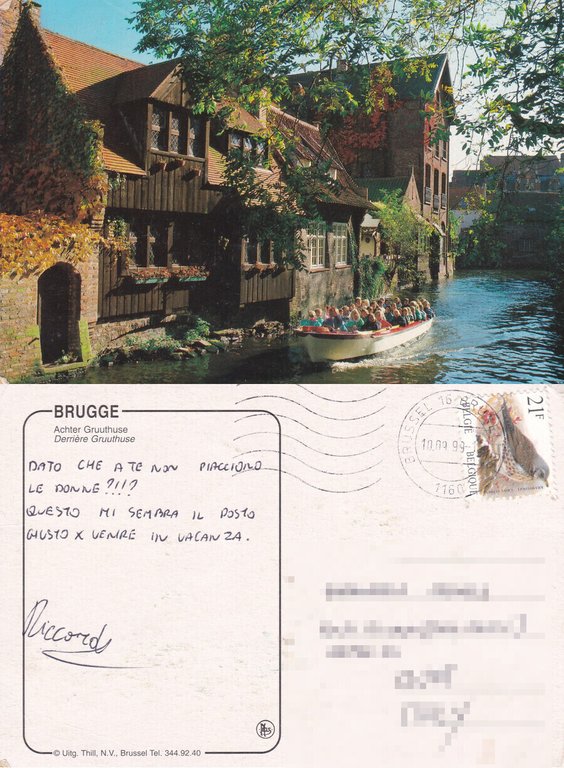 BRUGGE
Achter Gruuthuse
Derrière Gruuthuse
DATO CHE A TE NON PIACCIONO
LE DONNE?!!?
QUESTO MI SEMBRA IL POSTO
GIUSTO X VENIRE IN VACANZA.
Riccardo
© Uitg. Thill, N.V., Brussel Tel. 344.92.40
BRUSSEL 16
10.09.99
1160
BELGIË - BELGIQUE
21F